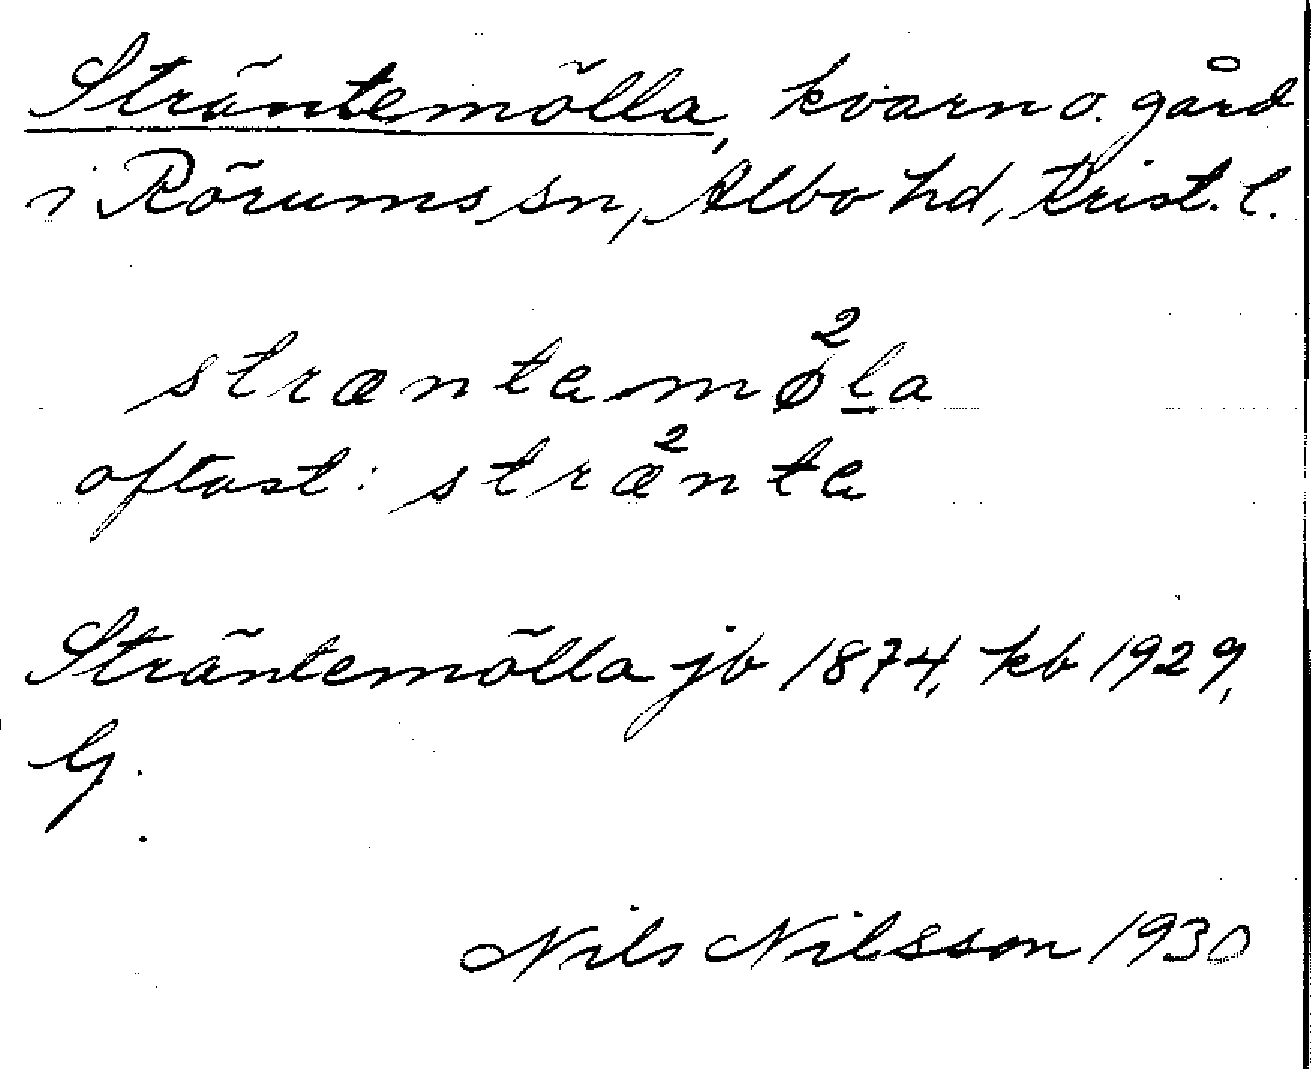 Sträntemölla, kvarn o. gård
i Rörums sn, Albo hd, Krist. l.
stræntamø²la
oftast: stræ²nta
Sträntemölla jb 1874, kb 1929,
G.
Nils Nilsson 1930